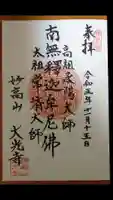 奉拝
令和五年十一月十三日
高祖承陽大師
南無釋迦牟尼佛
太祖常済大師
妙高山
大光寺